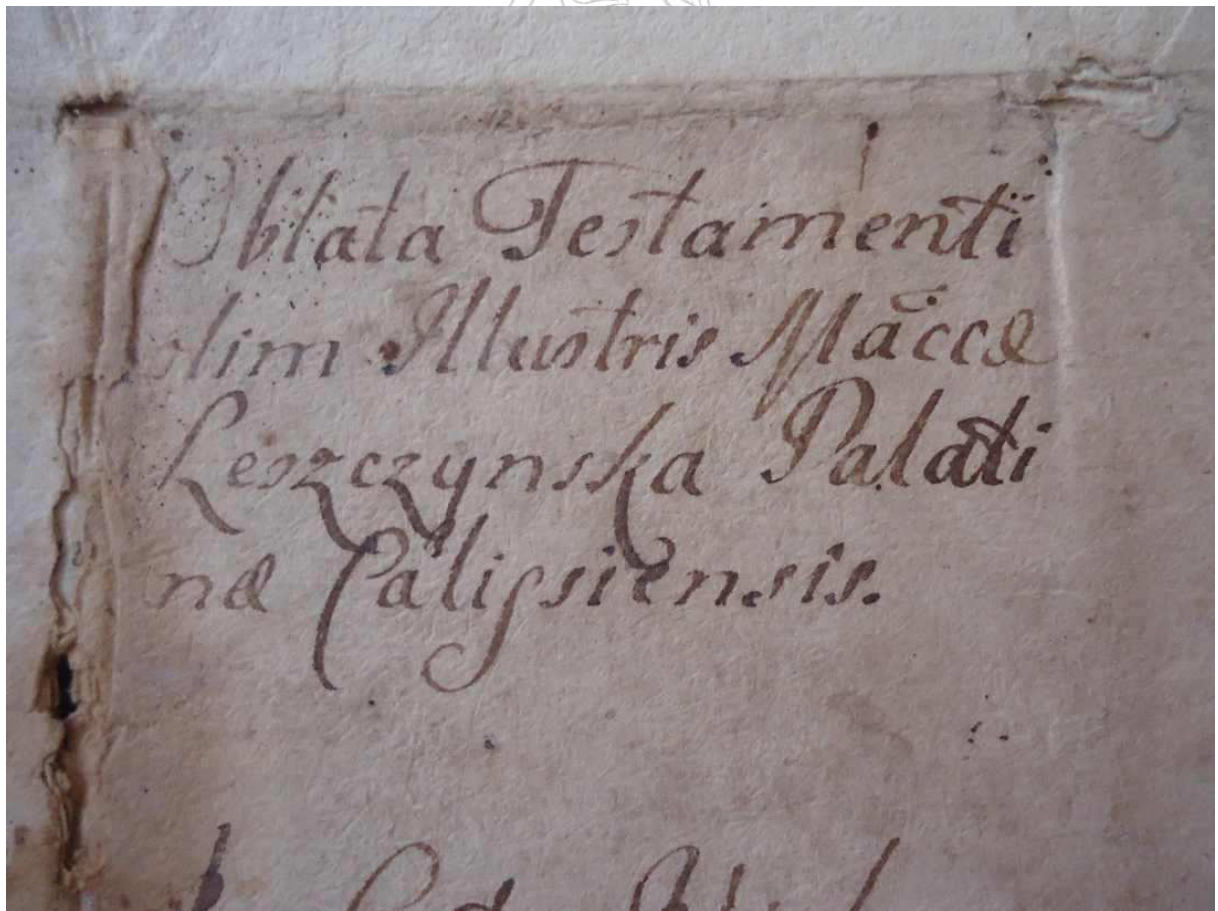 Oblata Testamenti
olim Illustris Mãccæ
Leszczynska Palati
næ Calissiensis.